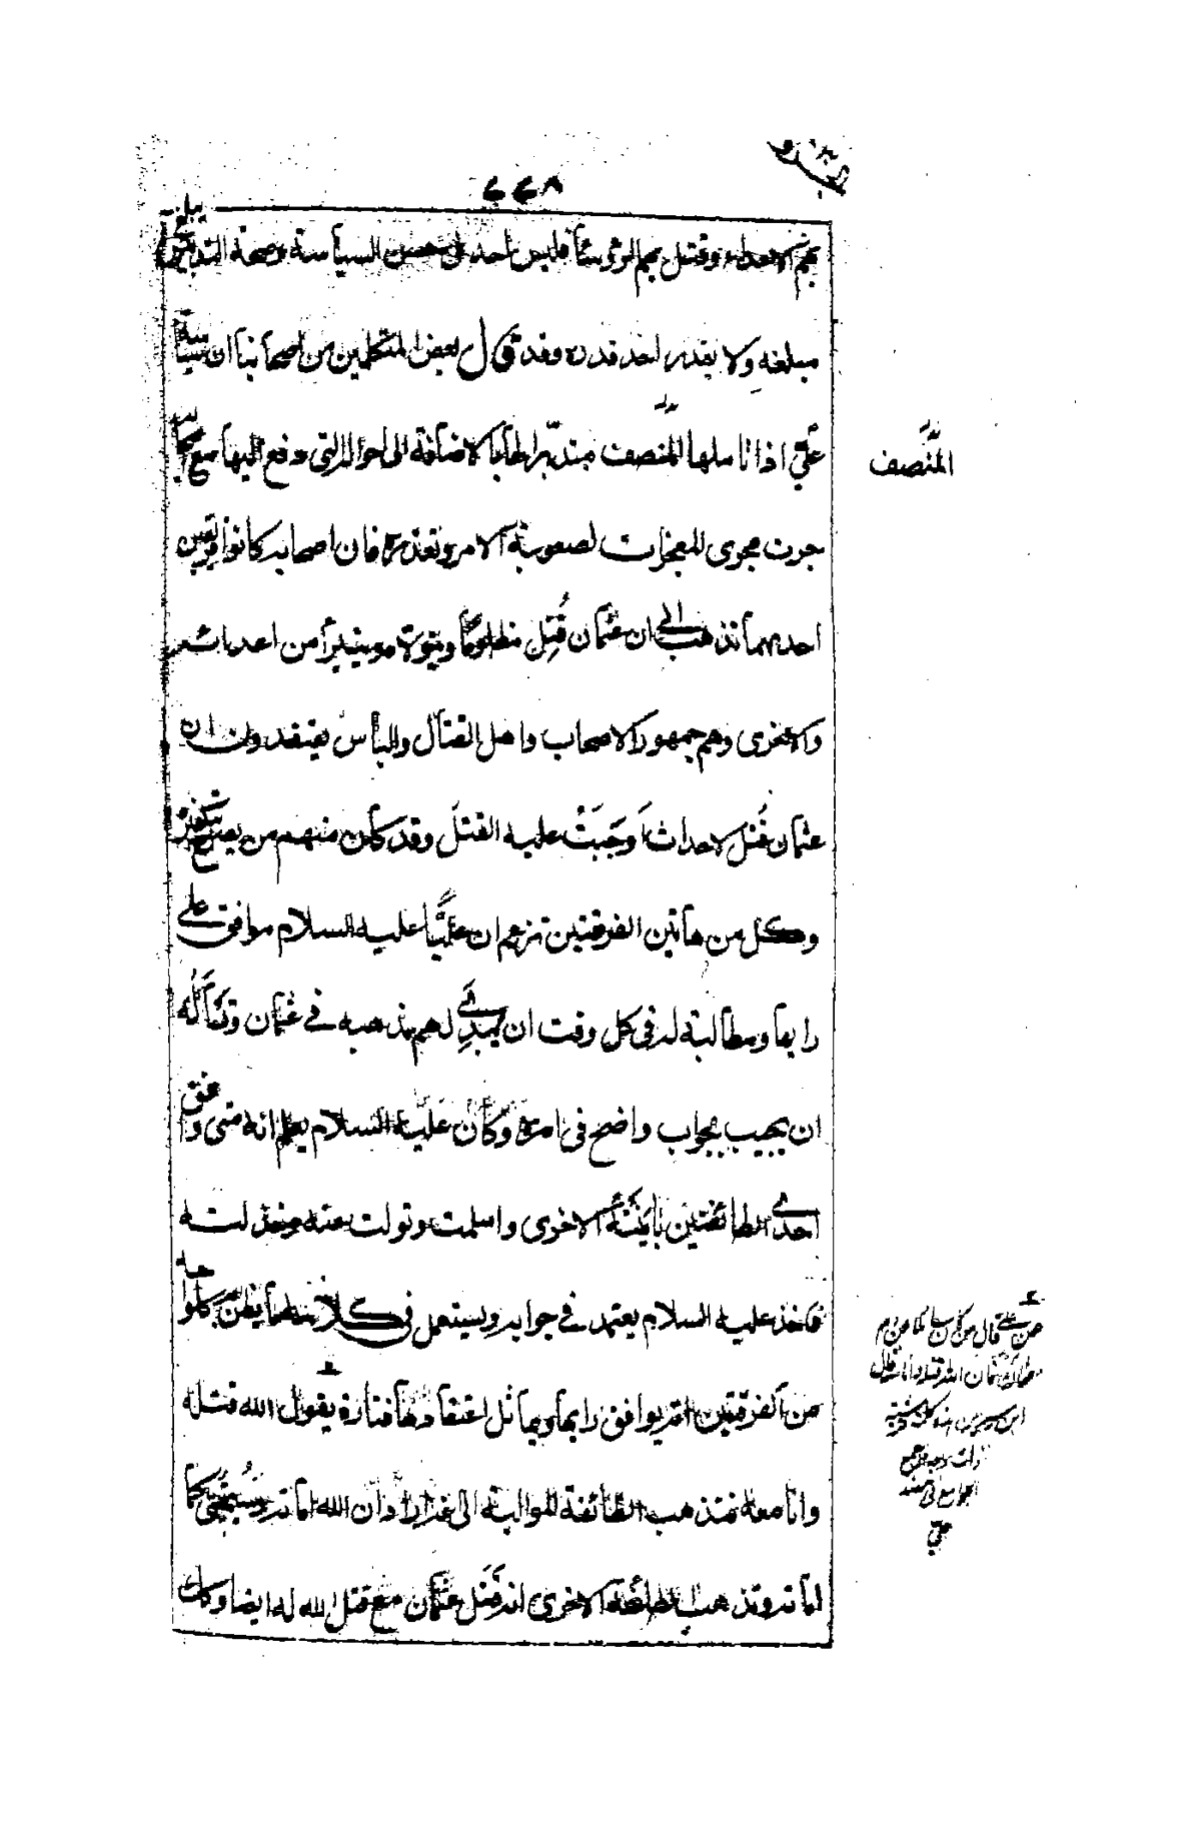 ٢٢٨
بهم الاعداء وقتل بهم الرؤسا فليس لاحد في حسن السياسة وصحة التدبير يبلغ
مبلغه ولا يقدر احد قدره وقد قال بعض المتكلمين من اصحابنا ان سياسة
علي اذا تاملها المنصف متدبرا لها بالاضافة الى احواله التي دفع اليها مع
جرت مجرى المعجزات لصعوبة الامر وتعذره فان اصحابه كانوا فرقتين
احديهما تذهب الى ان عثمان قُتِل مظلوما وتتولاه وتتبرأ من اعدائه
والاخرى وهم جمهور الاصحاب واهل القتال والبأس يعتقدون ان
عثمان قُتل لاحداث اَوجَبَتْ عليه القتل وقد كان منهم من يصرح بتكفيره
وكل من هاتين الفرقتين تزعم ان عليًّا عليه السلام موافق على
رايها ومطالبة له في كل وقت ان يُبدِي لهم مذهبه في عثمان وتسأله
ان يجيب بجواب واضح في امره وكان عليه السلام يعلم انه متى وافق
احدى الطائفتين باينته الاخرى واسلمته وتولت عنه وخذلته
فاخذ عليه السلام يعتمد في جوابه ويستعمل في كلامه ما يظن به كل واحدة
من الفرقتين انه يوافق رايها ويماثل اعتقادها فتارة يقول الله قتله
وانا معه فتذهب الطائفة الموالية الى انه اراد ان الله اماته وسيميتني كما
اماته وتذهب الطائفة الاخرى انه قتل عثمان مع قتل الله له ايضا وكذلك
المنصف
من علي قال من كان سائلا عن دم
عثمان فان الله قتله وانا معه قال
ابن سيرين هذه كلمة